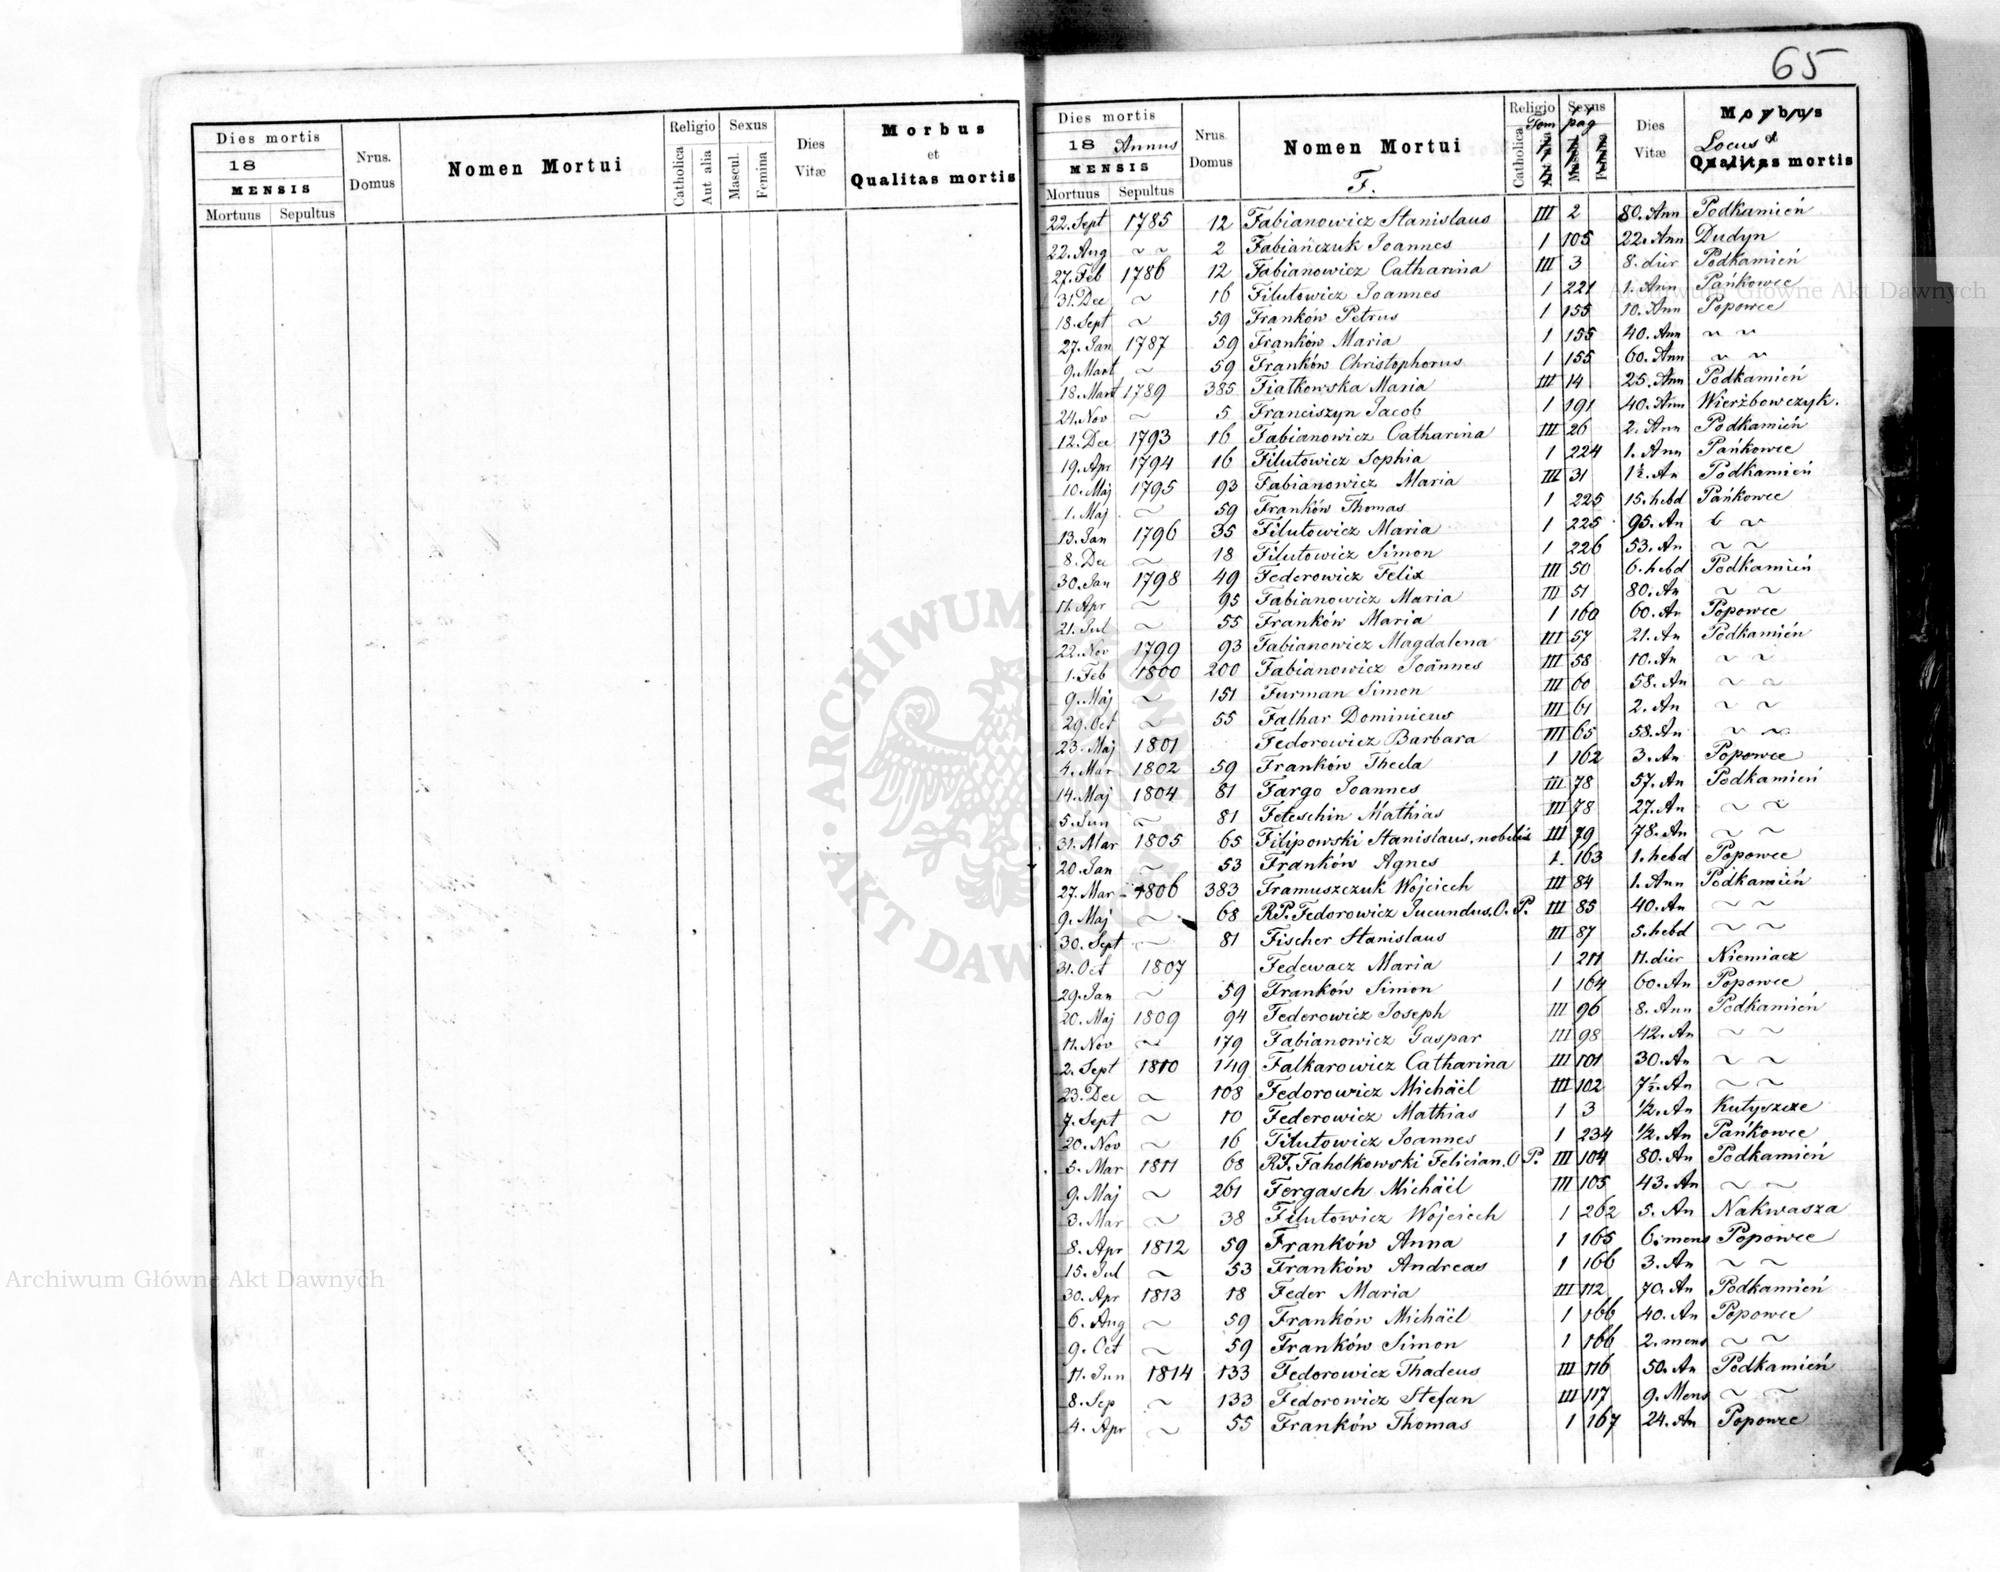 65
Dies mortis
18
MENSIS
Mortuus Sepultus
Nrus. Domus
Nomen Mortui
Religio
Catholica
Aut alia
Sexus
Mascul.
Femina
Dies Vitæ
Morbus
et
Qualitas mortis
Dies mortis
18 Annus
MENSIS
Mortuus Sepultus
Nrus. Domus
Nomen Mortui
F.
Religio Tom
Catholica
Aut alia
Sexus pag
Mascul.
Femina
Dies Vitæ
Morbus
Locus et
Qualitas mortis
22. Sept 1785 12 Fabianowicz Stanislaus III 2 80. Ann Podkamień
22. Aug ~ ~ 2 Fabiańczuk Joannes 1 105 22. Ann Dudyn
27. Feb 1786 12 Fabianowicz Catharina III 3 8. dier Podkamień
31. Dec ~ 16 Filutowicz Joannes 1 221 1. Ann Pańkowce
18. Sept ~ 59 Franków Petrus 1 155 10. Ann Popowce
27. Jan 1787 59 Franków Maria 1 155 40. Ann ~ ~
9. Mart ~ 59 Franków Christophorus 1 155 60. Ann ~ ~
18. Mart 1789 385 Fiałkowska Maria III 14 25. Ann Podkamień
24. Nov ~ 5 Franciszyn Jacob 1 191 40. Ann Wierżbowczyk.
12. Dec 1793 16 Fabianowicz Catharina III 26 2. Ann Podkamień
19. Apr 1794 16 Filutowicz Sophia 1 224 1. Ann Pańkowce
10. Maj 1795 93 Fabianowicz Maria III 31 1½. An Podkamień
1. Maj ~ 59 Franków Thomas 1 225 15. hebd Pańkowce
13. Jan 1796 35 Filutowicz Maria 1 225 95. An ~ ~
8. Dec ~ 18 Filutowicz Simon 1 226 53. An ~ ~
30. Jan 1798 49 Federowicz Felix III 50 6. hebd Podkamień
11. Apr ~ 95 Fabianowicz Maria III 51 80. An ~ ~
21. Jul ~ 55 Franków Maria 1 160 60. An Popowce
22. Nov 1799 93 Fabianowicz Magdalena III 57 21. An Podkamień
1. Feb 1800 200 Fabianowicz Joannes III 58 10. An ~ ~
9. Maj ~ 151 Furman Simon III 60 58. An ~ ~
29. Oct ~ 55 Falhar Dominicus III 61 2. An ~ ~
23. Maj 1801 Fedorowicz Barbara III 65 58. An ~ ~
4. Mar 1802 59 Franków Thecla 1 162 3. An Popowce
14. Maj 1804 81 Fargo Joannes III 78 57. An Podkamień
5. Jun ~ 81 Feteschin Mathias III 78 27. An ~ ~
31. Mar 1805 65 Filipowski Stanislaus, nobilis III 79 78. An ~ ~
20. Jan ~ 53 Franków Agnes 1. 163 1. hebd Popowce
27. Mar 1806 383 Framuszczuk Wojciech III 84 1. Ann Podkamień
9. Maj ~ 68 RP. Fedorowicz Jucundus, O. P. III 85 40. An ~ ~
30. Sept ~ 81 Fischer Stanislaus III 87 5. hebd ~ ~
31. Oct 1807 Fedewacz Maria 1 211 11. dier Niemiacz
29. Jan ~ 59 Franków Simon 1 164 60. An Popowce
20. Maj 1809 94 Federowicz Joseph III 96 8. Ann Podkamień
11. Nov ~ 179 Fabianowicz Gaspar III 98 42. An ~ ~
2. Sept 1810 149 Falkarowicz Catharina III 101 30. An ~ ~
23. Dec ~ 108 Fedorowicz Michäel III 102 7½. An ~ ~
7. Sept ~ 10 Federowicz Mathias 1 3 ½. An Kutyszcze
20. Nov ~ 16 Filutowicz Joannes 1 234 ½. An Pańkowce
5. Mar 1811 68 RF. Faholkowski Felician, O P. III 104 80. An Podkamień
9. Maj ~ 261 Fergasch Michäel III 105 43. An ~ ~
3. Mar ~ 38 Filutowicz Wojciech 1 262 5. An Nakwasza
8. Apr 1812 59 Franków Anna 1 165 6. mens Popowce
15. Jul ~ 53 Franków Andreas 1 166 3. An ~ ~
30. Apr 1813 18 Feder Maria III 112 70. An Podkamień
6. Aug ~ 59 Franków Michäel 1 166 40. An Popowce
9. Oct ~ 59 Franków Simon 1 166 2. mens ~ ~
11. Jun 1814 133 Fedorowicz Thadeus III 116 50. An Podkamień
8. Sep ~ 133 Fedorowicz Stefan III 117 9. Mens ~ ~
4. Apr ~ 55 Franków Thomas 1 167 24. An Popowce
Archiwum Główne Akt Dawnych
Archiwum Główne Akt Dawnych